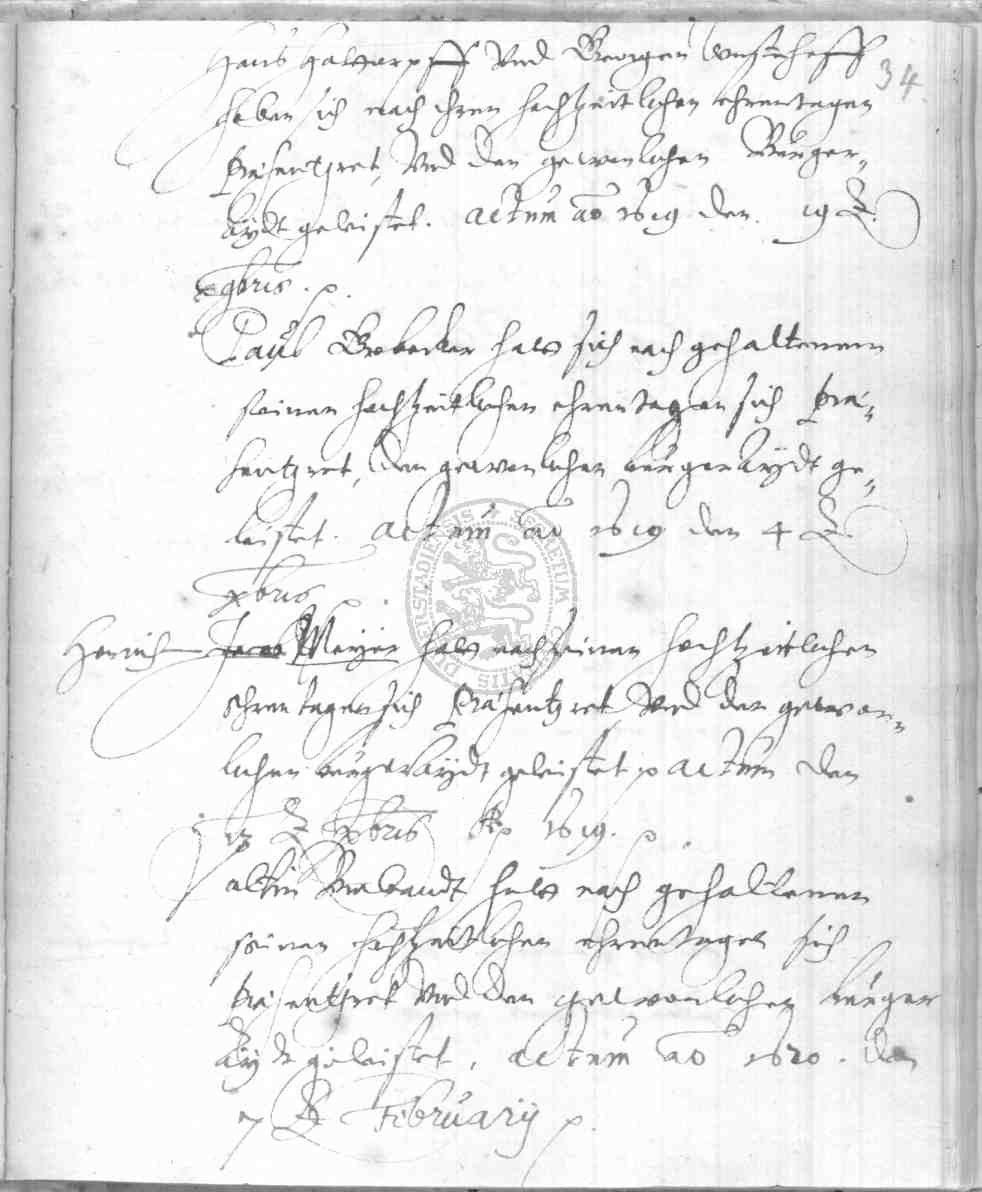 34.
Hans Halharpff Vnd Georgen
haben sich nach ihren hochzeitlichen ehrentagen
præsentiret, Vnd den gewonlichen Bürger„
Aydt geleistet. Actum ao 1619 den. 19 t.
9bris. p.
Paul Gobecker hatt sich nach gehaltenem
seinen hochzeitlichen ehrentagen sich præ„
sentiret, den gewonlichen bürger Aydt ge„
leistet. Actum ao 1619 den 4 t.
xbris p.
Henrich Jacob Meyer hatt nach seinen hochzeitlichen
ehrentagen sich præsentiret Vnd den gewon„
lichen bürger Aydt geleistet p Actum den
t xbris Ao 1619. p.
Valtin Brabandt hatt nach gehaltenen
seinen hochzeitlichen ehrentagen sich
præsentiret Vnd den gewonlichen bürger
Aydt geleistet, Actum ao 1620. den
7 t February p.
SECRETUM